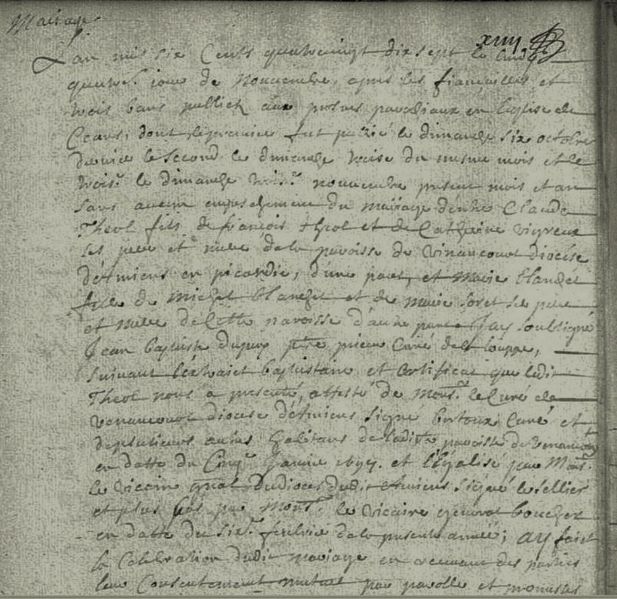 Mariage
xiiij
L'an mis six Cents quatrevingt dix sept le lundy
quatre. jour de Novembre, apres les fiancailles et
trois bans publiez aux prosnes parroissiaux en l'Eglise de
dont le premier fut publié le dimanche six octobre
dernier le second le dimanche treise du mesme mois et le
trois.e le dimanche trois.e novembre present mois et an
sans aucun empeschement du mariage d'entre Claude
Theot fils de françois theot et de Catherine vigreux
ses pere et mere de la paroisse de vinancourt diocese
d'Emiens en picardie, d'une part, et Marie blanchet
fille de Michel blanchet et de Marie foret ses pere
et mere de cette paroisse d'autre part. Jay soussigné
Jean baptiste dupuy ptre prieur Curé de
suivant l'extrait baptistaire et Certificat que ledit
Theot nous a presenté, attesté de Mons.r le Curé de
venancourt diocese d'Emiens signé Curé et
de plusieurs autres habitans de ladite paroisse de venancourt
en datte du Cinq.e Janvier 1697. et légalisé par Mons.r
le viccaire gnal du dioces dudit Emiens signé le sellier
et plus bas par Mons.r le vicaire general boucher
en datte du six.e febvrier de la presente année; ay fait
la Celebration dudit mariage en recevant des parties
leur Consentement mutuel par parolle et promesses